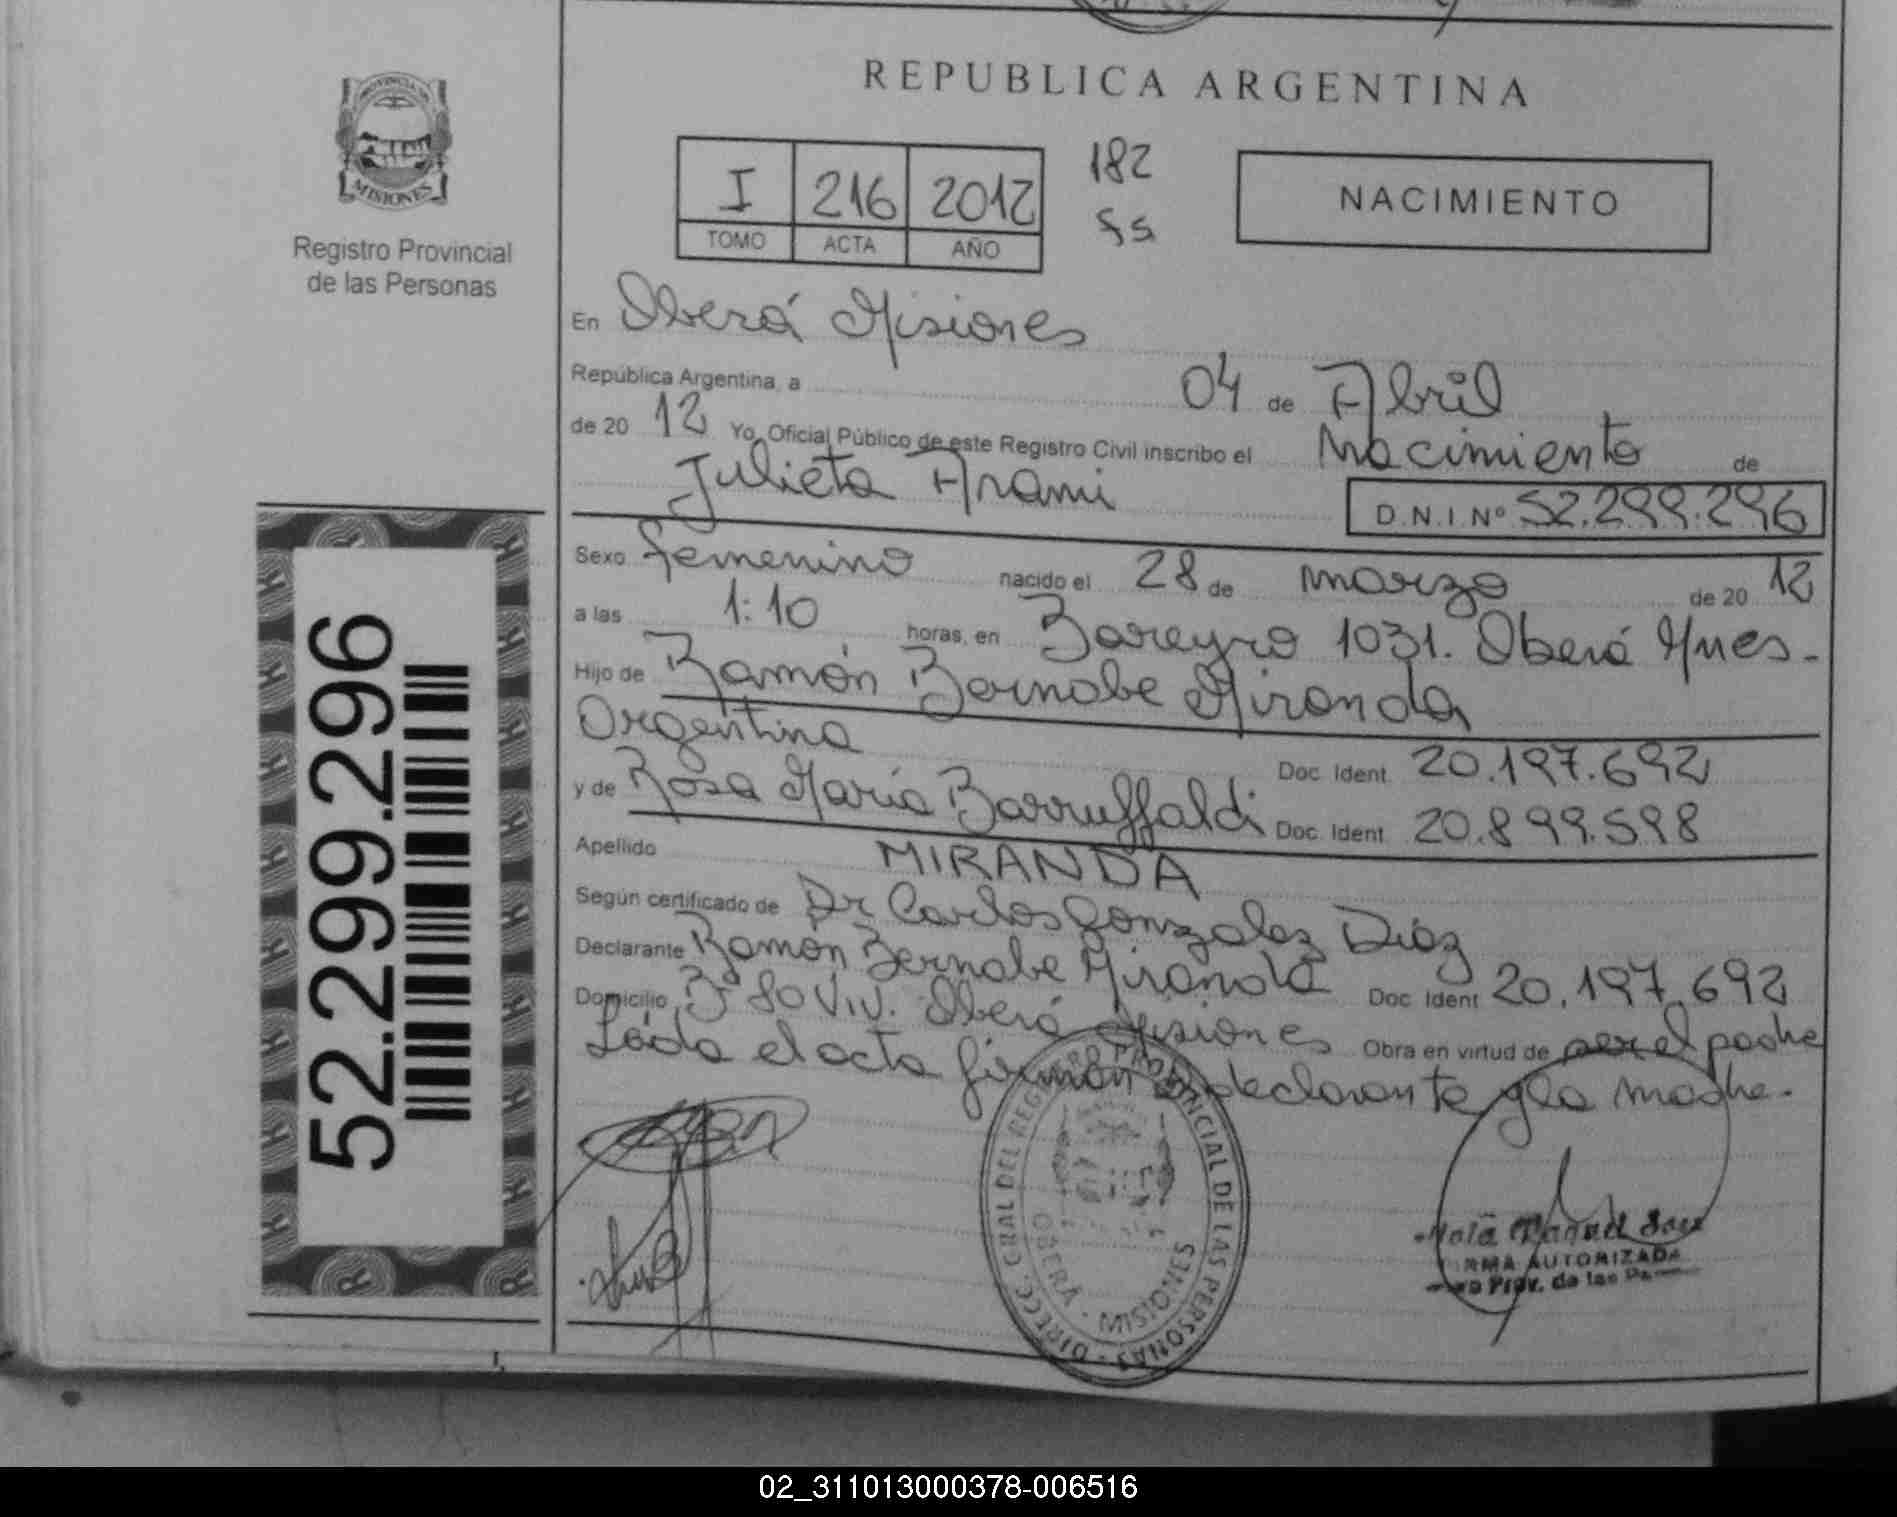 REPUBLICA ARGENTINA
PROVINCIA DE
MISIONES
Registro Provincial
de las Personas
I 216 2012 182
TOMO ACTA AÑO
NACIMIENTO
En Oberá Misiones
República Argentina, a 04 de Abril
de 2012 Yo, Oficial Público de este Registro Civil inscribo el Nacimiento de
Julieta Arami D.N.I Nº 52.299.296
Sexo femenino nacido el 28 de marzo de 2012
a las 1:10 horas, en Bareyro 1031. Oberá Mnes.
Hijo de Ramón Bernabe Miranda
Argentina Doc. Ident. 20.197.692
y de Rosa María Barruffaldi Doc. Ident. 20.899.598
Apellido MIRANDA
Según certificado de Dr Carlos Gonzalez Diáz
Declarante Ramón Bernabe Miranda Doc. Ident 20.197.692
Domicilio Bº 80 Viv. Oberá Misiones Obra en virtud de ser el padre
Leída el acta firman el declarante y la madre.
52.299.296
DIRECC. GRAL DEL REGISTRO PROVINCIAL DE LAS PERSONAS
OBERÁ - MISIONES
FIRMA AUTORIZADA
Prov. de las
02_311013000378-006516